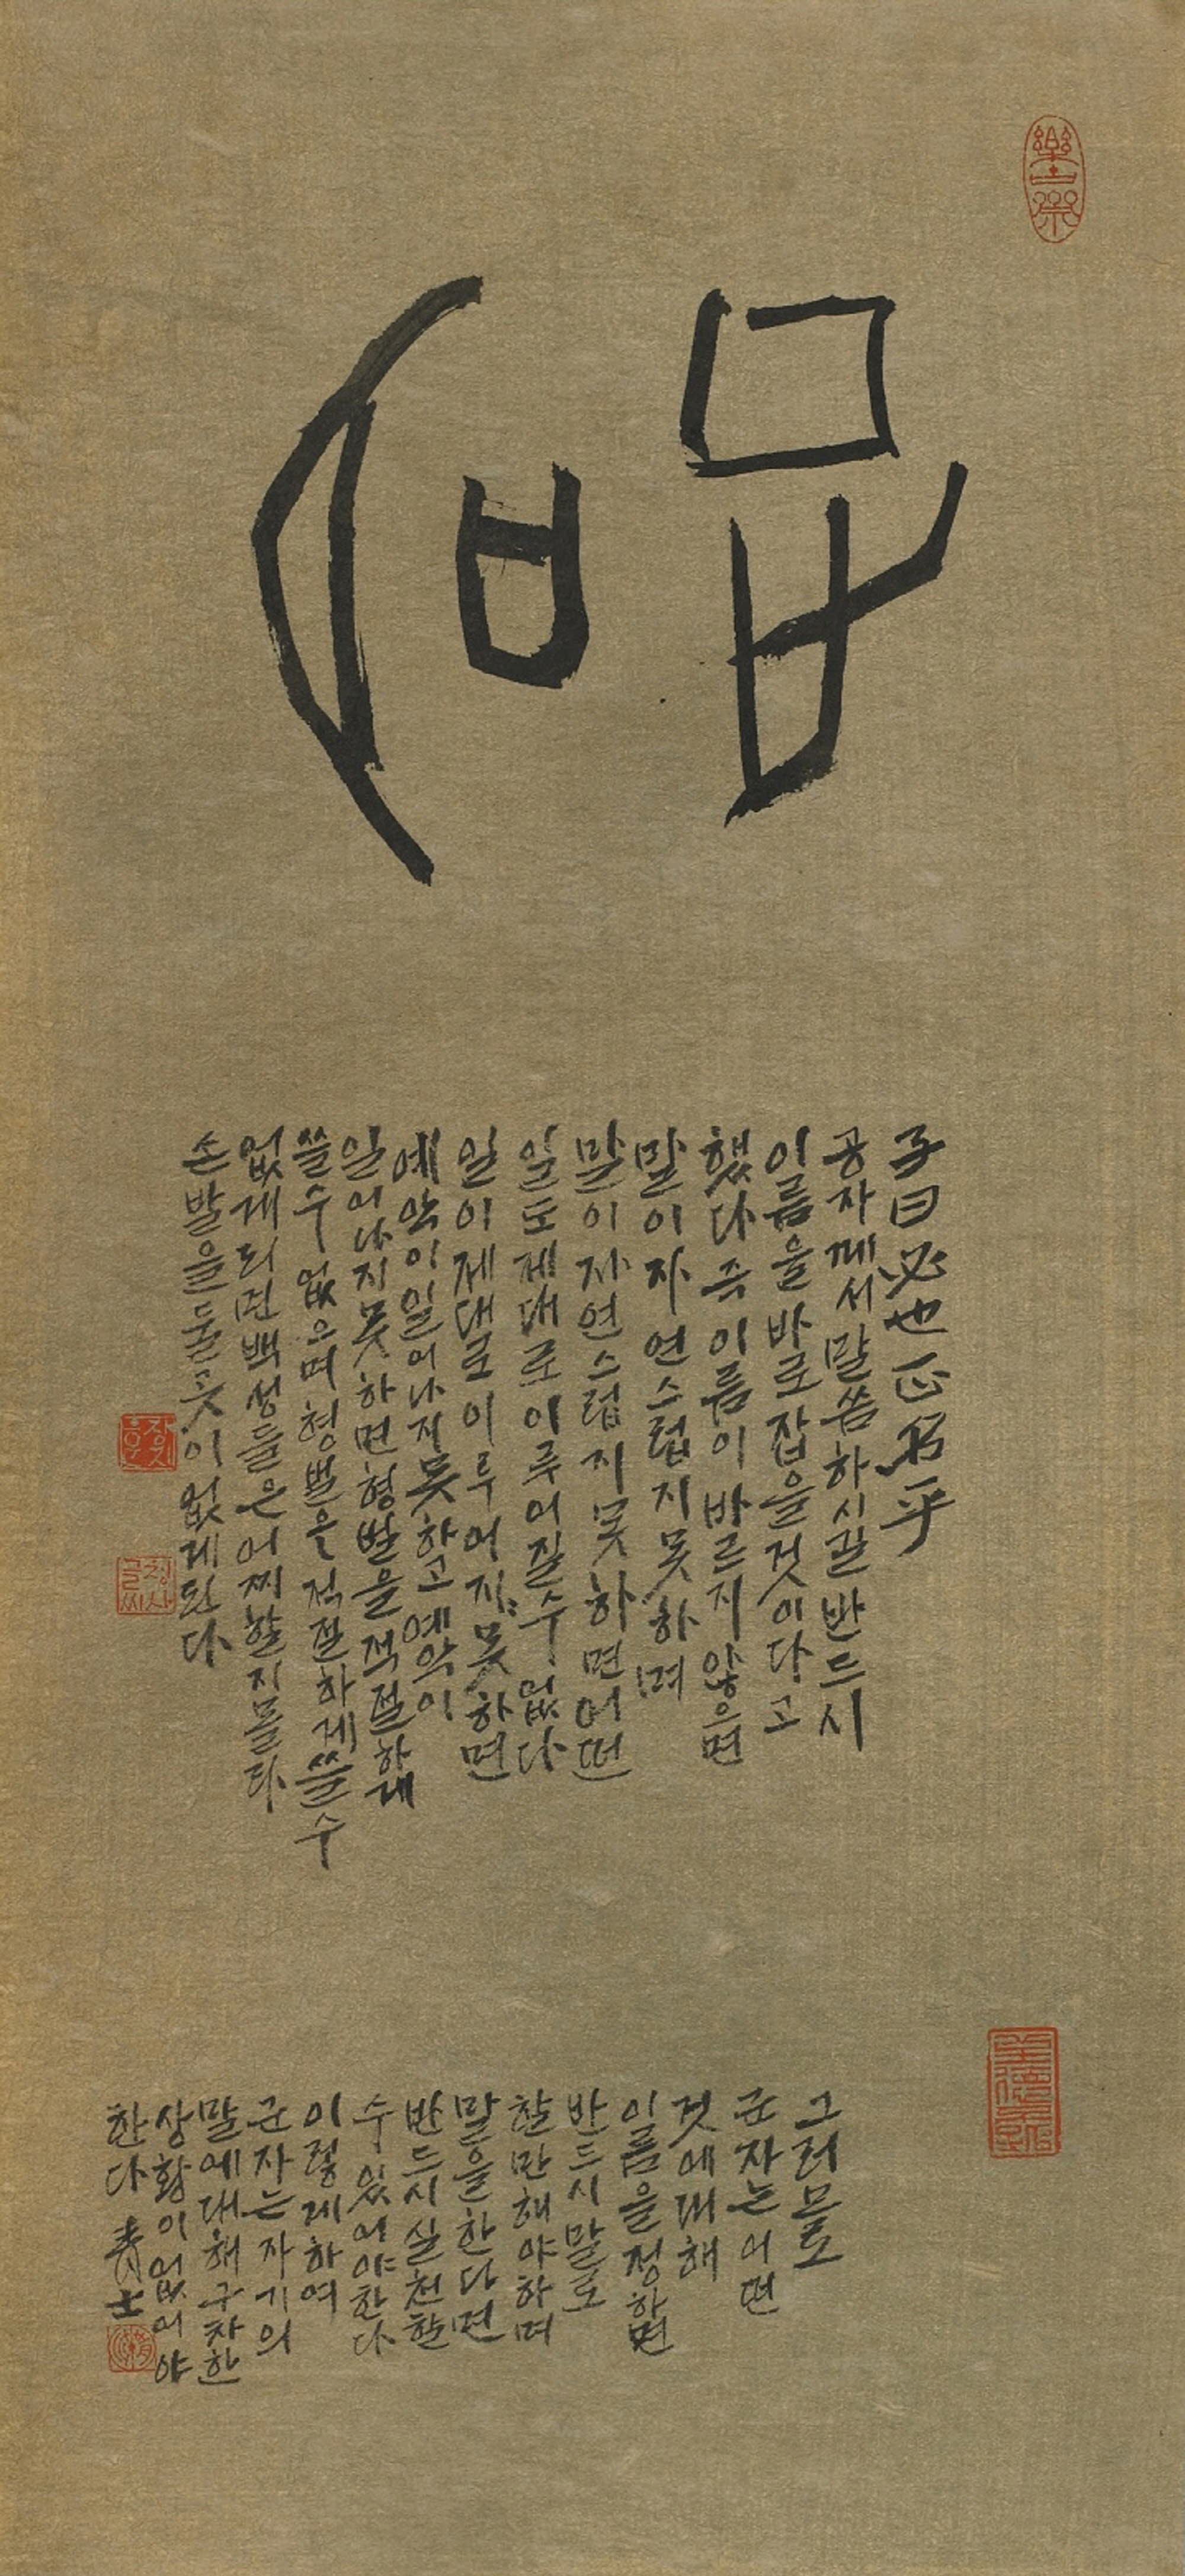 正名
子曰必也正名乎
공자께서 말씀하시길 반드시
이름을 바로잡을것이다고
했다 즉 이름이 바르지 않으면
말이 자연스럽지못하며
말이 자연스럽지못하면 어떤
일도 제대로 이루어질수 없다
일이 제대로 이루어지못하면
예악이 일어나지못하고 예악이
일어나지못하면 형벌을 적절하게
쓸수 없으며 형벌을 적절하게쓸수
없게되면 백성들은 어찌할지모르다
손발을 둘곳이 없게된다
그러므로
군자는 어떤
것에대해
이름을 정하면
반드시 말로
할만해야하며
말을한다면
반드시실천할
수있어야한다
이렇게하여
군자는 자기의
말에대해 구차한
상황이없어야
한다 青士